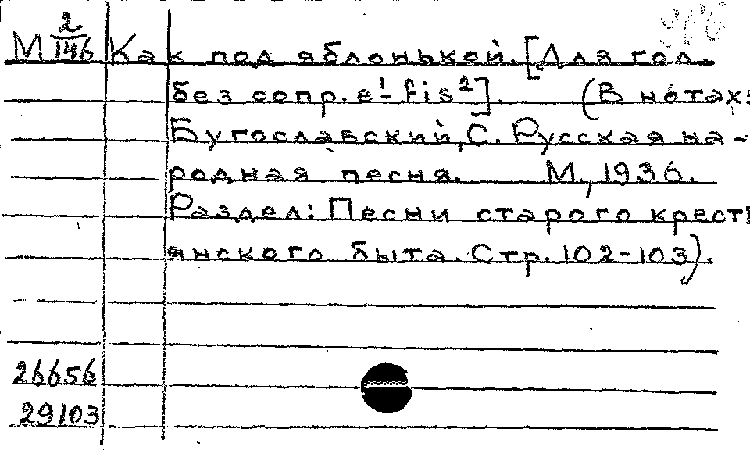 М 2/146 Как под яблонькой. [Для гол.
без сопр. e¹-fis²]. (В нотах:
Бугославский, С. Русская на-
родная песня. М., 1936.
Раздел: Песни старого крест
янского быта. Стр. 102-103).
26656
29103